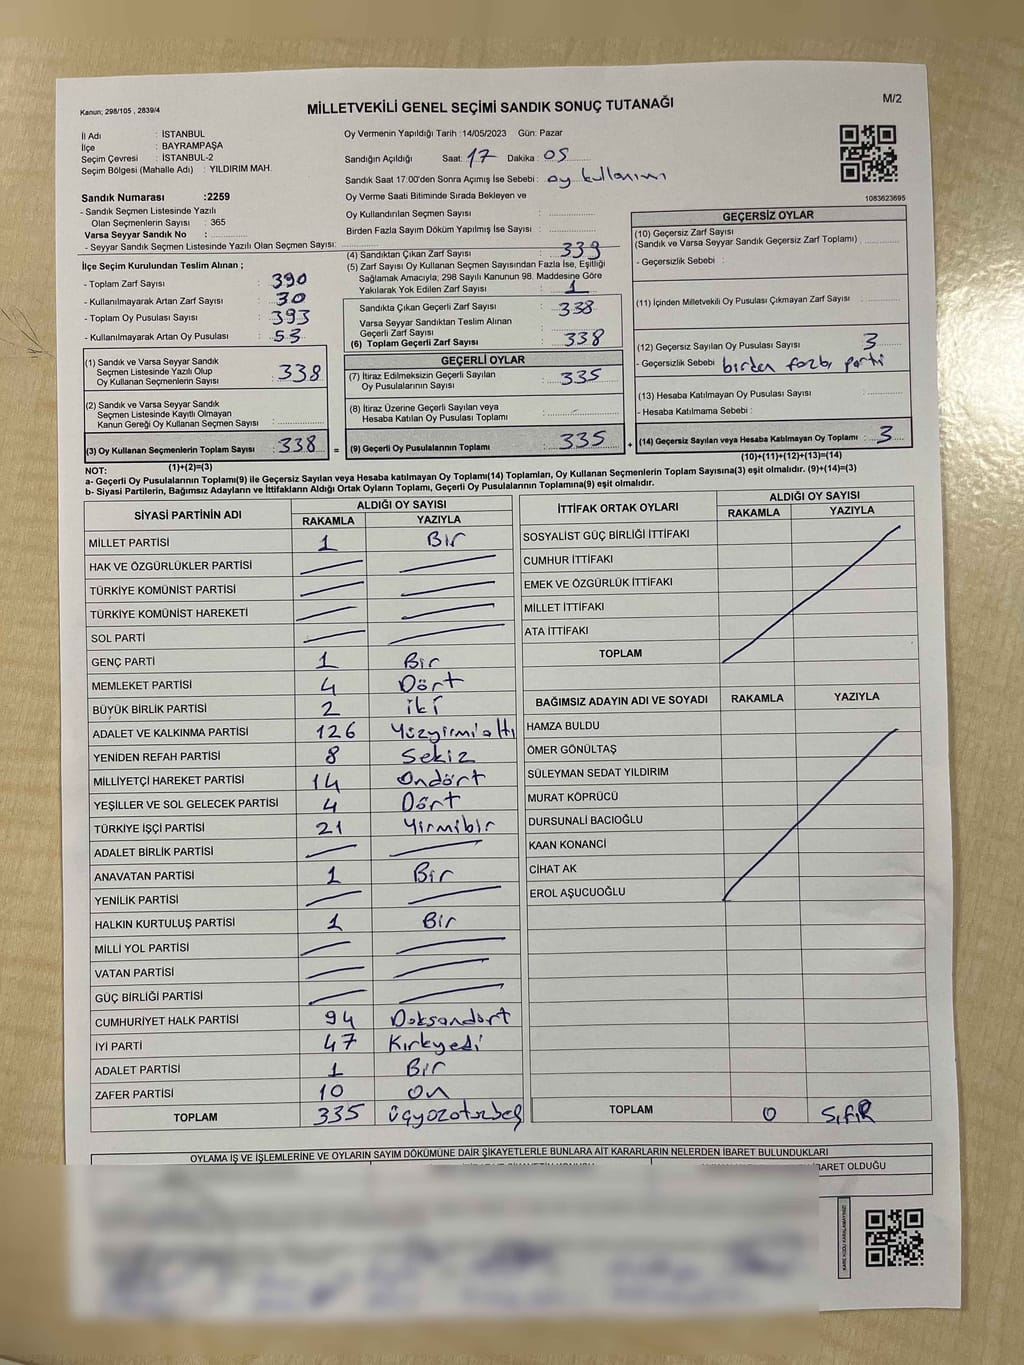 Kanun; 298/105 , 2839/4
MİLLETVEKİLİ GENEL SEÇİMİ SANDIK SONUÇ TUTANAĞI
M/2
İl Adı : İSTANBUL
İlçe : BAYRAMPAŞA
Seçim Çevresi : İSTANBUL-2
Seçim Bölgesi (Mahalle Adı) : YILDIRIM MAH.
Sandık Numarası :2259
- Sandık Seçmen Listesinde Yazılı
Olan Seçmenlerin Sayısı : 365
Varsa Seyyar Sandık No :
- Seyyar Sandık Seçmen Listesinde Yazılı Olan Seçmen Sayısı:
Oy Vermenin Yapıldığı Tarih :14/05/2023 Gün: Pazar
Sandığın Açıldığı Saat: 17 Dakika: 05
Sandık Saat 17:00'den Sonra Açımış İse Sebebi : oy kullanımı
Oy Verme Saati Bitiminde Sırada Bekleyen ve
Oy Kullandırılan Seçmen Sayısı :
Birden Fazla Sayım Döküm Yapılmış İse Sayısı :
1083623695
İlçe Seçim Kurulundan Teslim Alınan ;
- Toplam Zarf Sayısı : 390
- Kullanılmayarak Artan Zarf Sayısı : 30
- Toplam Oy Pusulası Sayısı : 393
- Kullanılmayarak Artan Oy Pusulası : 53
(1) Sandık ve Varsa Seyyar Sandık
Seçmen Listesinde Yazılı Olup
Oy Kullanan Seçmenlerin Sayısı : 338
(2) Sandık ve Varsa Seyyar Sandık
Seçmen Listesinde Kayıtlı Olmayan
Kanun Gereği Oy Kullanan Seçmen Sayısı :
(3) Oy Kullanan Seçmenlerin Toplam Sayısı : 338
(4) Sandıktan Çıkan Zarf Sayısı : 339
(5) Zarf Sayısı Oy Kullanan Seçmen Sayısından Fazla İse, Eşitliği
Sağlamak Amacıyla; 298 Sayılı Kanunun 98. Maddesine Göre
Yakılarak Yok Edilen Zarf Sayısı : 1
Sandıkta Çıkan Geçerli Zarf Sayısı : 338
Varsa Seyyar Sandıktan Teslim Alınan
Geçerli Zarf Sayısı :
(6) Toplam Geçerli Zarf Sayısı : 338
GEÇERLİ OYLAR
(7) İtiraz Edilmeksizin Geçerli Sayılan
Oy Pusulalarının Sayısı : 335
(8) İtiraz Üzerine Geçerli Sayılan veya
Hesaba Katılan Oy Pusulası Toplamı :
= (9) Geçerli Oy Pusulalarının Toplamı : 335
GEÇERSİZ OYLAR
(10) Geçersiz Zarf Sayısı
(Sandık ve Varsa Seyyar Sandık Geçersiz Zarf Toplamı)
- Geçersizlik Sebebi :
(11) İçinden Milletvekili Oy Pusulası Çıkmayan Zarf Sayısı :
(12) Geçersiz Sayılan Oy Pusulası Sayısı : 3
- Geçersizlik Sebebi : birden fazla parti
(13) Hesaba Katılmayan Oy Pusulası Sayısı :
- Hesaba Katılmama Sebebi :
+ (14) Geçersiz Sayılan veya Hesaba Katılmayan Oy Toplamı : 3
(1)+(2)=(3)
(10)+(11)+(12)+(13)=(14)
NOT:
a- Geçerli Oy Pusulalarının Toplamı(9) ile Geçersiz Sayılan veya Hesaba katılmayan Oy Toplamı(14) Toplamları, Oy Kullanan Seçmenlerin Toplam Sayısına(3) eşit olmalıdır. (9)+(14)=(3)
b- Siyasi Partilerin, Bağımsız Adayların ve İttifakların Aldığı Ortak Oyların Toplamı, Geçerli Oy Pusulalarının Toplamına(9) eşit olmalıdır.
SİYASİ PARTİNİN ADI ALDIĞI OY SAYISI
RAKAMLA YAZIYLA
MİLLET PARTİSİ 1 Bir
HAK VE ÖZGÜRLÜKLER PARTİSİ
TÜRKİYE KOMÜNİST PARTİSİ
TÜRKİYE KOMÜNİST HAREKETİ
SOL PARTİ
GENÇ PARTİ 1 Bir
MEMLEKET PARTİSİ 4 Dört
BÜYÜK BİRLİK PARTİSİ 2 iki
ADALET VE KALKINMA PARTİSİ 126 Yüzyirmialtı
YENİDEN REFAH PARTİSİ 8 Sekiz
MİLLİYETÇİ HAREKET PARTİSİ 14 Ondört
YEŞİLLER VE SOL GELECEK PARTİSİ 4 Dört
TÜRKİYE İŞÇİ PARTİSİ 21 Yirmibir
ADALET BİRLİK PARTİSİ
ANAVATAN PARTİSİ 1 Bir
YENİLİK PARTİSİ
HALKIN KURTULUŞ PARTİSİ 1 Bir
MİLLİ YOL PARTİSİ
VATAN PARTİSİ
GÜÇ BİRLİĞİ PARTİSİ
CUMHURİYET HALK PARTİSİ 94 Doksandört
İYİ PARTİ 47 Kırkyedi
ADALET PARTİSİ 1 Bir
ZAFER PARTİSİ 10 On
TOPLAM 335 üçyüzotuzbeş
İTTİFAK ORTAK OYLARI ALDIĞI OY SAYISI
RAKAMLA YAZIYLA
SOSYALİST GÜÇ BİRLİĞİ İTTİFAKI
CUMHUR İTTİFAKI
EMEK VE ÖZGÜRLÜK İTTİFAKI
MİLLET İTTİFAKI
ATA İTTİFAKI
TOPLAM
BAĞIMSIZ ADAYIN ADI VE SOYADI RAKAMLA YAZIYLA
HAMZA BULDU
ÖMER GÖNÜLTAŞ
SÜLEYMAN SEDAT YILDIRIM
MURAT KÖPRÜCÜ
DURSUNALİ BACIOĞLU
KAAN KONANCİ
CİHAT AK
EROL AŞUCUOĞLU
TOPLAM 0 SıfıR
OYLAMA İŞ VE İŞLEMLERİNE VE OYLARIN SAYIM DÖKÜMÜNE DAİR ŞİKAYETLERLE BUNLARA AİT KARARLARIN NELERDEN İBARET BULUNDUKLARI
İBARET OLDUĞU
KARE KODU KARALAMAYINIZ!